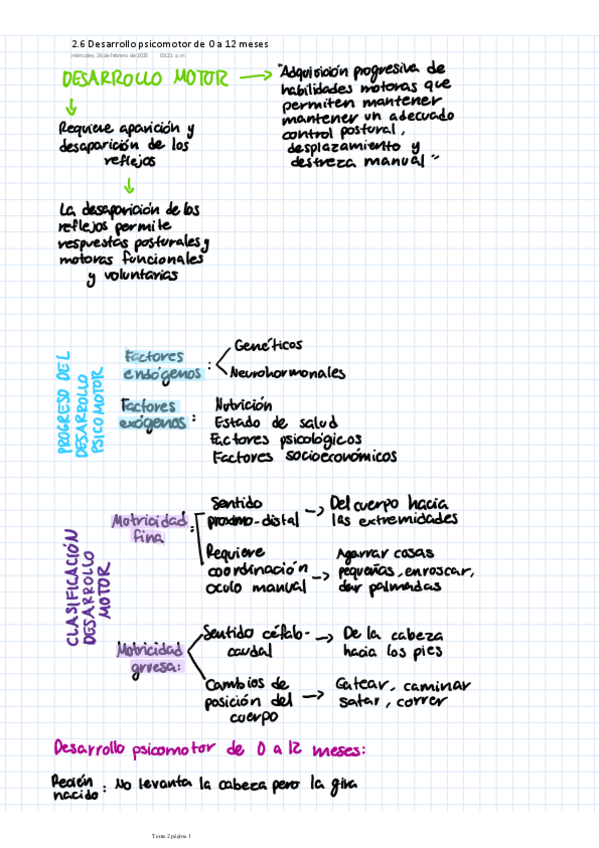 2.6 Desarrollo psicomotor de 0 a 12 meses
miércoles, 26 de febrero de 2025 03:21 a. m.
DESARROLLO MOTOR → "Adquisición progresiva de
habilidades motoras que
permiten mantener
mantener un adecuado
control postural,
desplazamiento y
destreza manual"
Requiere aparición y
desaparición de los
reflejos
La desaparición de los
reflejos permite
respuestas posturales y
motoras funcionales
y voluntarias
PROGRESO DEL
DESARROLLO
PSICOMOTOR
Factores
endógenos :
Genéticos
Neurohormonales
Factores
exógenos :
Nutrición
Estado de salud
Factores psicológicos
Factores socioeconómicos
CLASIFICACIÓN
DESARROLLO
MOTOR
Motricidad
fina :
Sentido
proximo-distal → Del cuerpo hacia
las extremidades
Requiere
coordinación
oculo manual → Agarrar cosas
pequeñas, enroscar,
dar palmadas
Motricidad
gruesa:
Sentido céfalo-
caudal → De la cabeza
hacia los pies
Cambios de
posición del
cuerpo → Gatear, caminar
saltar, correr
Desarrollo psicomotor de 0 a 12 meses:
Recién
nacido : No levanta la cabeza pero la gira
Tema 2 página 1